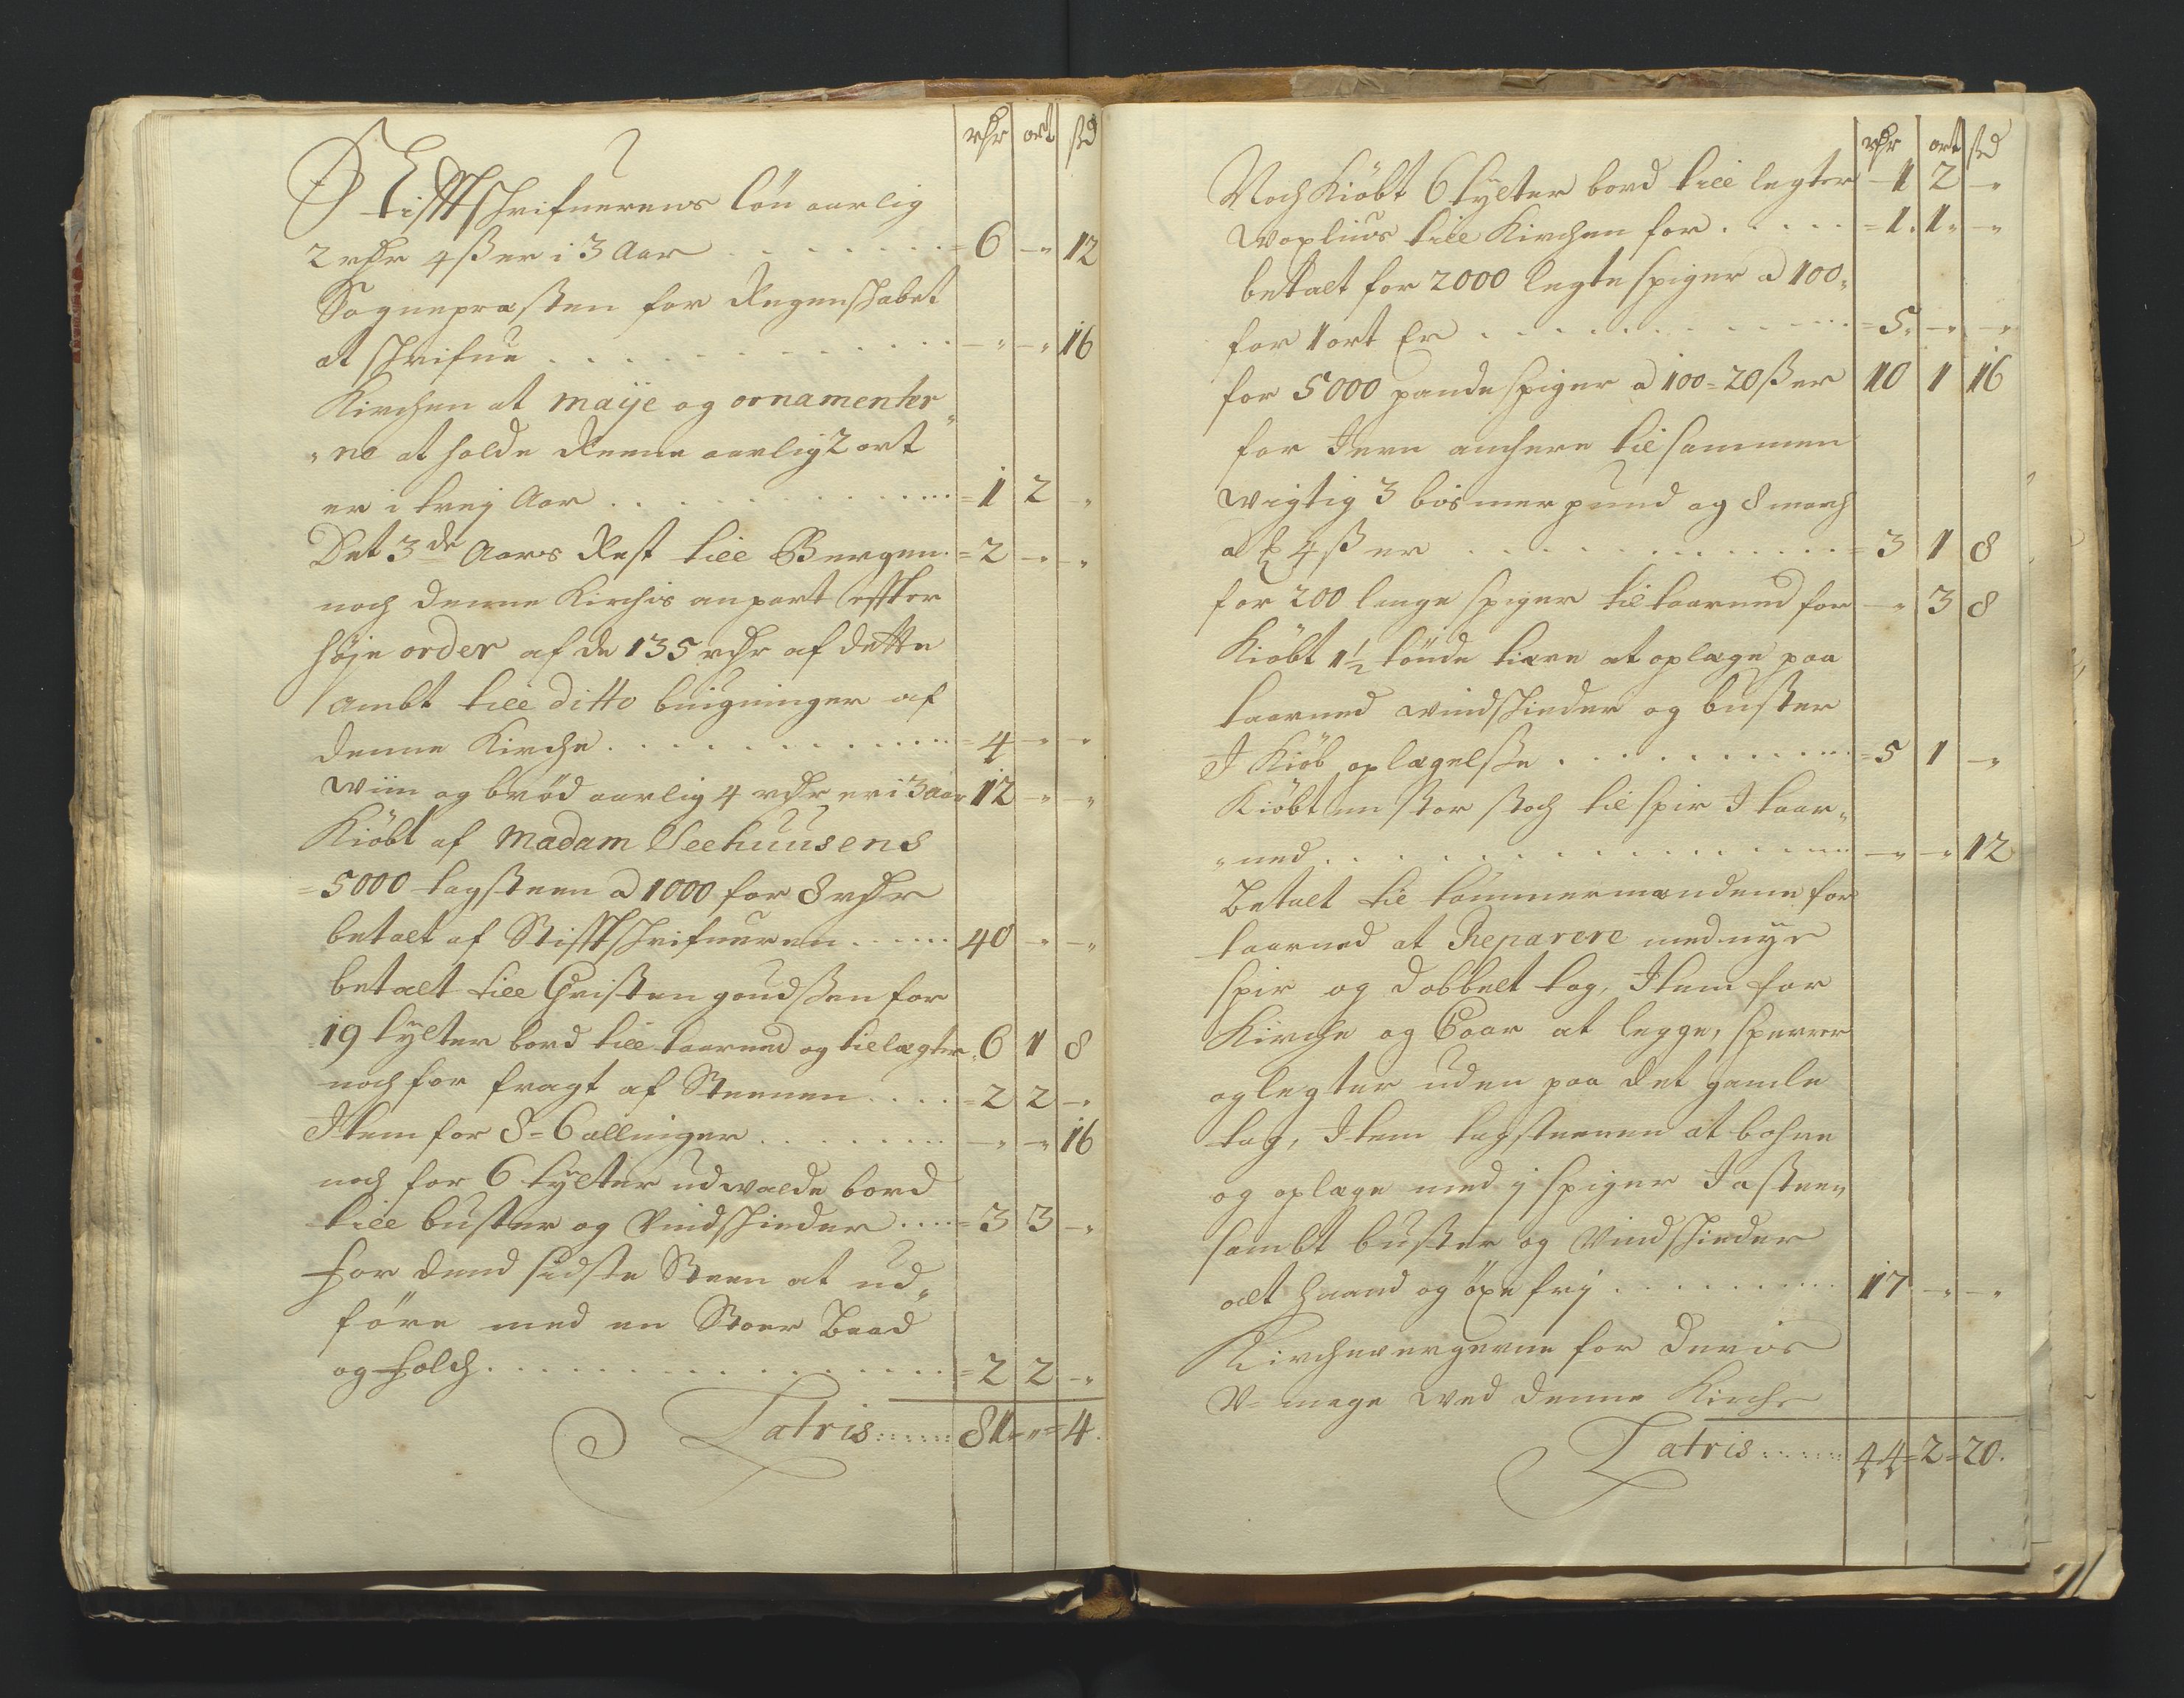 rdr ort sk
Stifftschrifuerens lön aarlig
2 rdr 4 ß er i 3 Aar . . . . . . = 6 - " 12
Sognepræsten for Regenskabet
at schrifue . . . . . . . - " - " 16
Kirchen at maije og ornamenter„
„ne at holde Reene aarlig 2 ort
er i trej Aar . . . . . . = 1 2 - "
Det 3de Aars Rest till Bergen = 2 - " - "
noch denne Kirchis anpart effter
höje order af de 135 rdr af dette
Ambt till ditto büigninger af
denne Kirche . . . . . . = 4 - " - "
Wiin og bröd aarlig 4 rdr er i 3 Aar 12 - " - "
Kiöbt af Madam Seehuusens
= 5000 tagsteen a 1000 for 8 rdr
betalt af Stifftschrifueren . . . . 40 - " - "
betalt till Christen goudssen for
19 tylter bord till taarned og till lægter 6 1 8
noch for fragt af Steenen . . . . = 2 2 - "
Item for 8 = 6 allninger . . . . . - " - " 16
noch for 6 tylter udwalde bord
till buster og Vindschieder . . . . = 3 3 - "
for dend sidste Steen at ud„
före med en Stoer Baad
og folch . . . . . . . = 2 2 - "
Latris . . . . . 81 - " = 4.
rdr ort sk
Noch Kiöbt 6 tylter bord till legter - 1 2 - "
Woxlius till Kirchen for . . . . . = 1. 1 " - "
betalt for 2000 legte spiger a 100„
for 1 ort Er . . . . . . = 5 " - " - "
for 5000 pande spiger a 100 = 20 ß er 10 1 16
for Jern anchere til sammen
wigtig 3 bismerpund og 8 march
a ℔ 4 ß er . . . . . . . = 3 1 8
for 200 lange spiger til taarned for - " 3 8
Kiöbt 1½ tönde tiære at oplæge paa
taarned windschieder og buster
I Kiöb oplagelsse . . . . . . = 5 1 - "
Kiöbt een stor stoch til spir I taar„
„ned . . . . . . . . - " - " 12
Betalt til tömmermændene for
taarned at Reparere med nye
spir og dobbelt tag, Item for
Kirche og Coor at legge, sperrer
og legter uden paa det gamle
tag, Item tagsteenen at bohre
og oplæge med j spiger I a steen
sambt buster og Vindschieder
alt haand og öxe frij . . . . . . 17 - " - "
Kirchewergerne for deris
V= mage wed denne Kirche
Latris . . . . . 44 = 2 = 20.